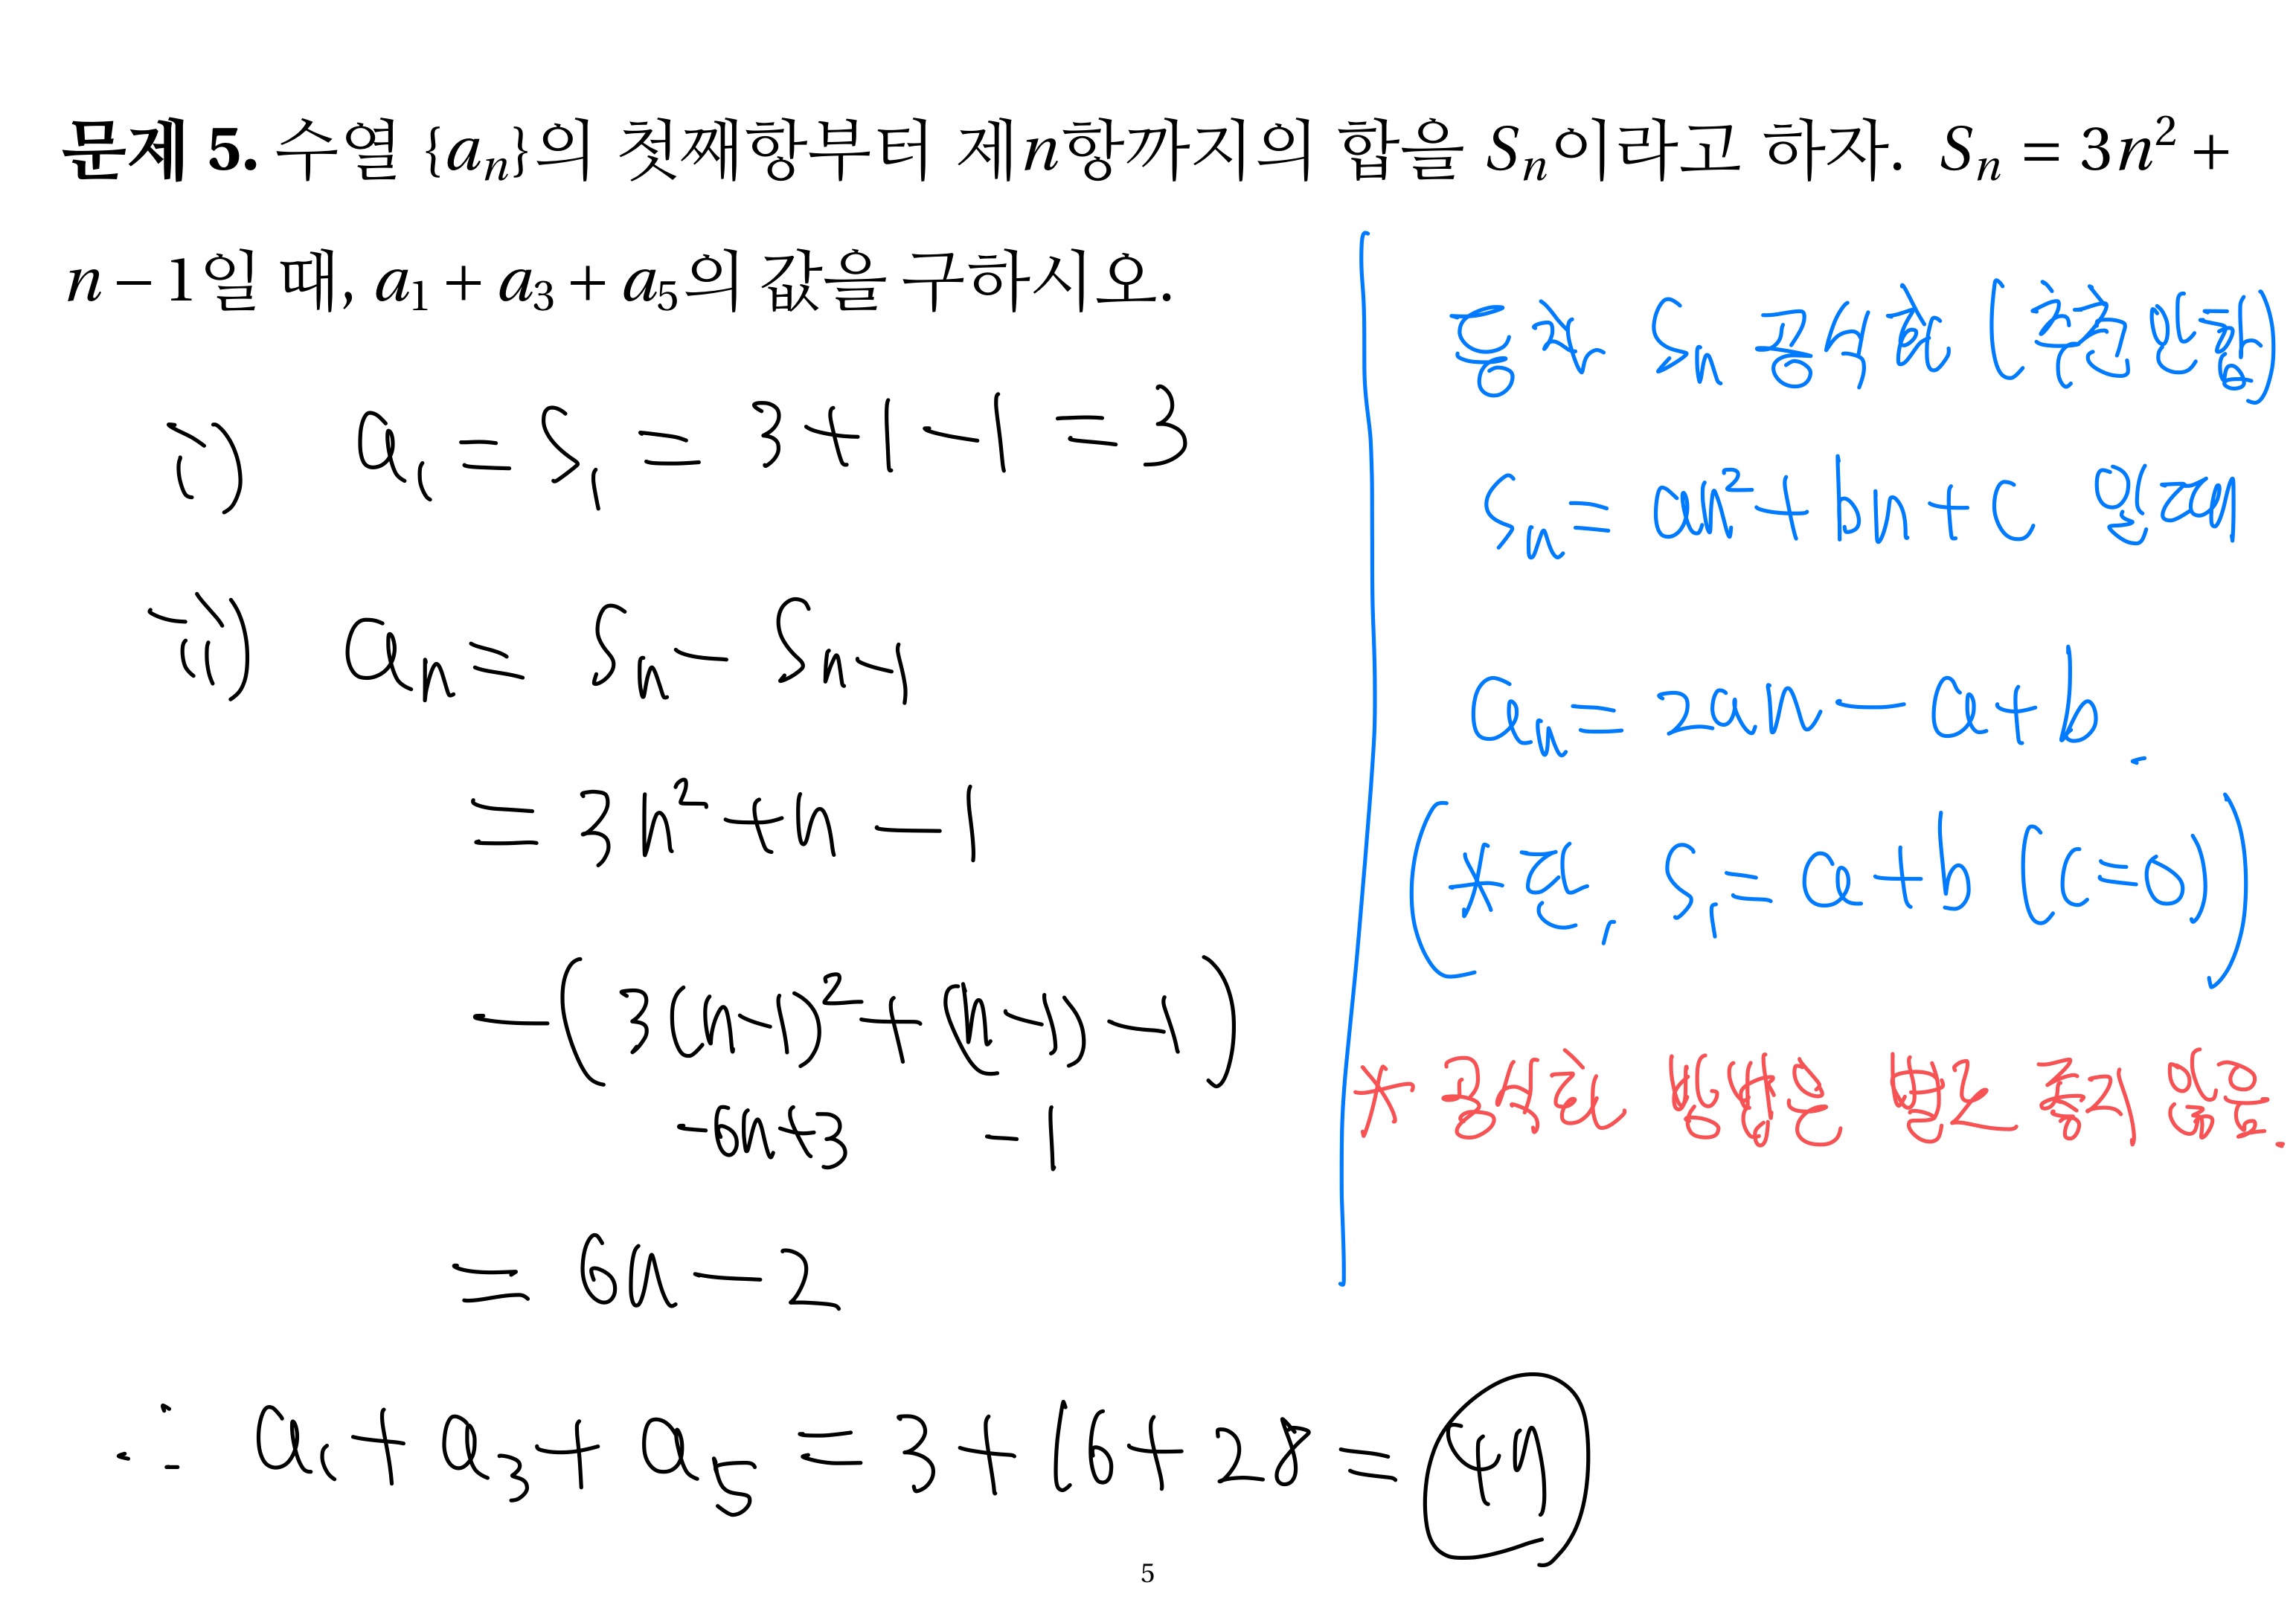 문제 5. 수열 {aₙ}의 첫째항부터 제n항까지의 합을 Sₙ이라고 하자. Sₙ = 3n² +
n − 1일 때, a₁ + a₃ + a₅의 값을 구하시오.
i) a₁ = S₁ = 3+1−1 = 3
ii) aₙ = Sₙ − Sₙ₋₁
= 3n²+n−1
−(3(n−1)²+(n−1)−1)
−6n+3 −1
= 6n−2
∴ a₁+a₃+a₅ = 3+16+28 = 49
등차 Sₙ 공식화
Sₙ = an²+bn+c 일 때
aₙ = 2an − a+b.
(* 단, S₁ = a+b (c=0))
* 공식화
5